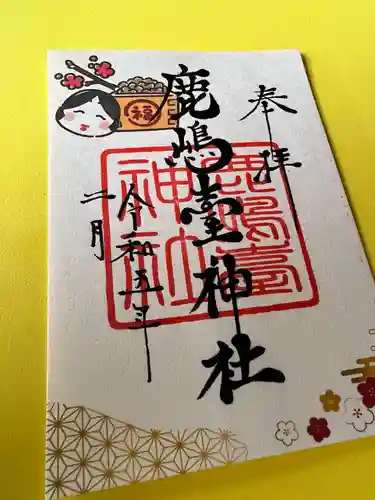 奉拝
鹿嶋臺神社
鹿嶋臺
神社
令和五年
二月
福